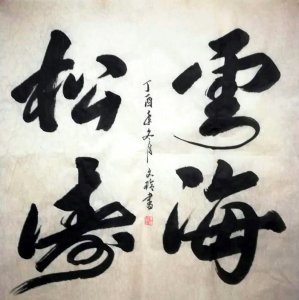 雲海
松涛
丁酉年冬月文書